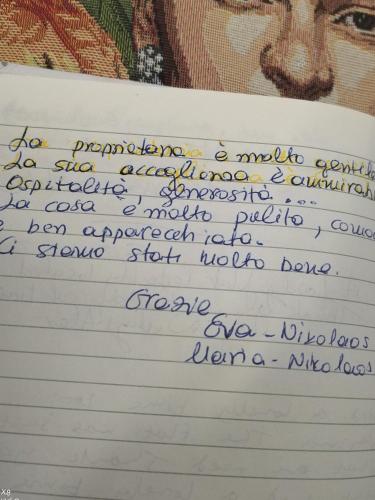 La proprietaria è molto gentile
La sua accoglienza è ammirab
Ospitalità, generosità....
La casa è molto pulito, como
e ben apparecchiato.
Ci siamo stati molto bene.
Grazie
Eva - Nikolaos
Maria - Nikolaos
X8